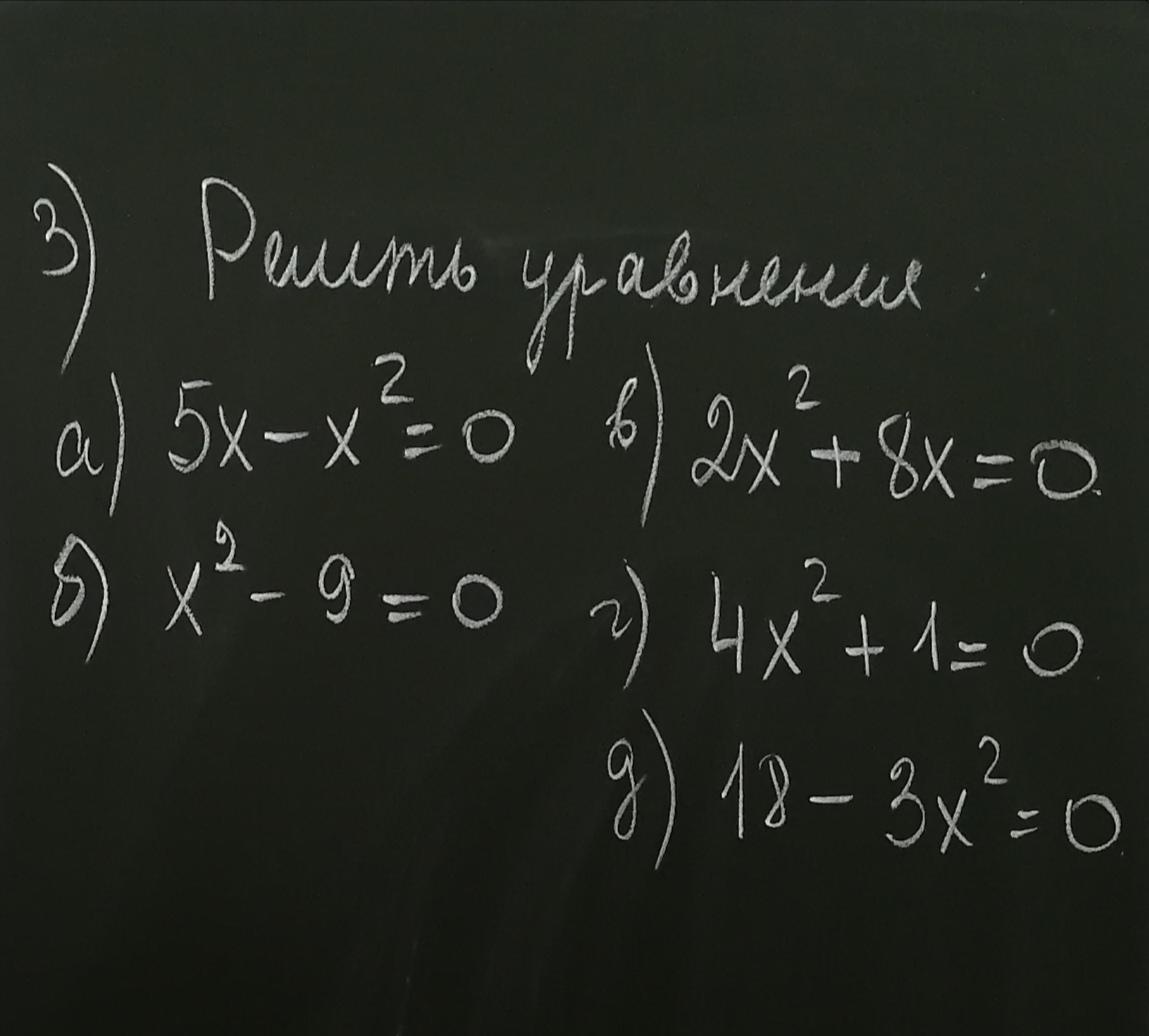 3) Решить уравнения:
а) 5x - x² = 0
б) x² - 9 = 0
в) 2x² + 8x = 0.
г) 4x² + 1 = 0.
д) 18 - 3x² = 0.